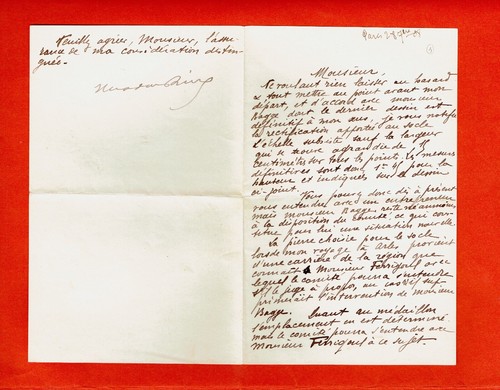 Paris 28 7bre 05
Monsieur,
Ne voulant rien laisser au hasard
et tout mettre au point avant mon
départ, et d'accord avec monsieur
Bagge dont le dernier dessin est
définitif à mon avis, je vous notifie
la rectification apportée au socle
L'échelle subsiste sauf la largeur
qui se trouve agrandie de 15
centimètres sur tous les points. Les mesures
définitives sont donc 1m 45 pour la
hauteur et indiqués sur le dessin
ci-joint.
Vous pouvez donc dès à présent
vous entendre avec un entrepreneur
mais monsieur Bagge reste néanmoins
à la disposition du comité, ce qui cons
titue pour lui une situation nouvelle.
La pierre choisie pour le socle
lors de mon voyage à Arles provient
d'une carrière de la région que
connait Monsieur Férigoul avec
lequel le comité pourra s'entendre
s'il le juge à propos, au cas où sup
primerait l'intervention de monsieur
Bagge. Quant au médaillon
l'emplacement en est déterminé
mais le comité pourra s'entendre avec
Monsieur Férigoul à ce sujet.
Veuillez agréer, Monsieur, l'assu
rance de ma considération distin
guée.